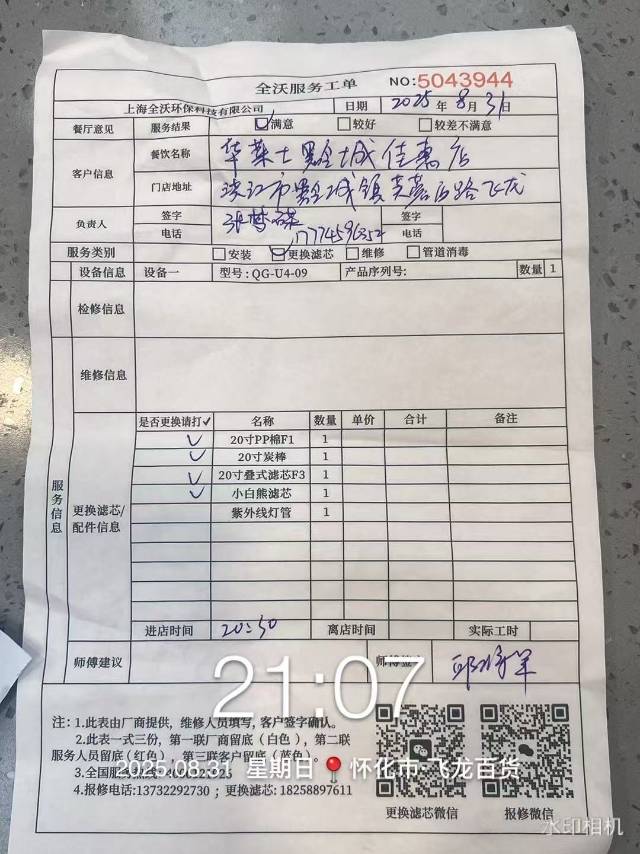 全沃服务工单 NO:5043944
上海全沃环保科技有限公司 日期 2025年8月31日
餐厅意见 服务结果 满意 较好 较差不满意
客户信息 餐饮名称 华莱士黔城佳惠店
门店地址 洪江市黔城镇芙蓉西路飞龙
负责人 签字 签字
电话 17774596352 电话
服务类别 安装 更换滤芯 维修 管道消毒
设备信息 设备一 型号:QG-U4-09 产品序列号: 数量 1
检修信息
维修信息
服务信息
更换滤芯/配件信息
是否更换请打✓ 名称 数量 单价 合计 备注
✓ 20寸PP棉F1 1
✓ 20寸炭棒 1
✓ 20寸叠式滤芯F3 1
✓ 小白熊滤芯 1
紫外线灯管 1
进店时间 20:50 离店时间 实际工时
师傅建议 师傅签字
21:07
注:1.此表由厂商提供,维修人员填写,客户签字确认。
2.此表一式三份,第一联厂商留底(白色),第二联
服务人员留底(红色),第三联客户留底(蓝色)。
2025.08.31 星期日 怀化市·飞龙百货
3.全国服务热线
4.报修电话:13732292730;更换滤芯:18258897611
更换滤芯微信 报修微信
水印相机